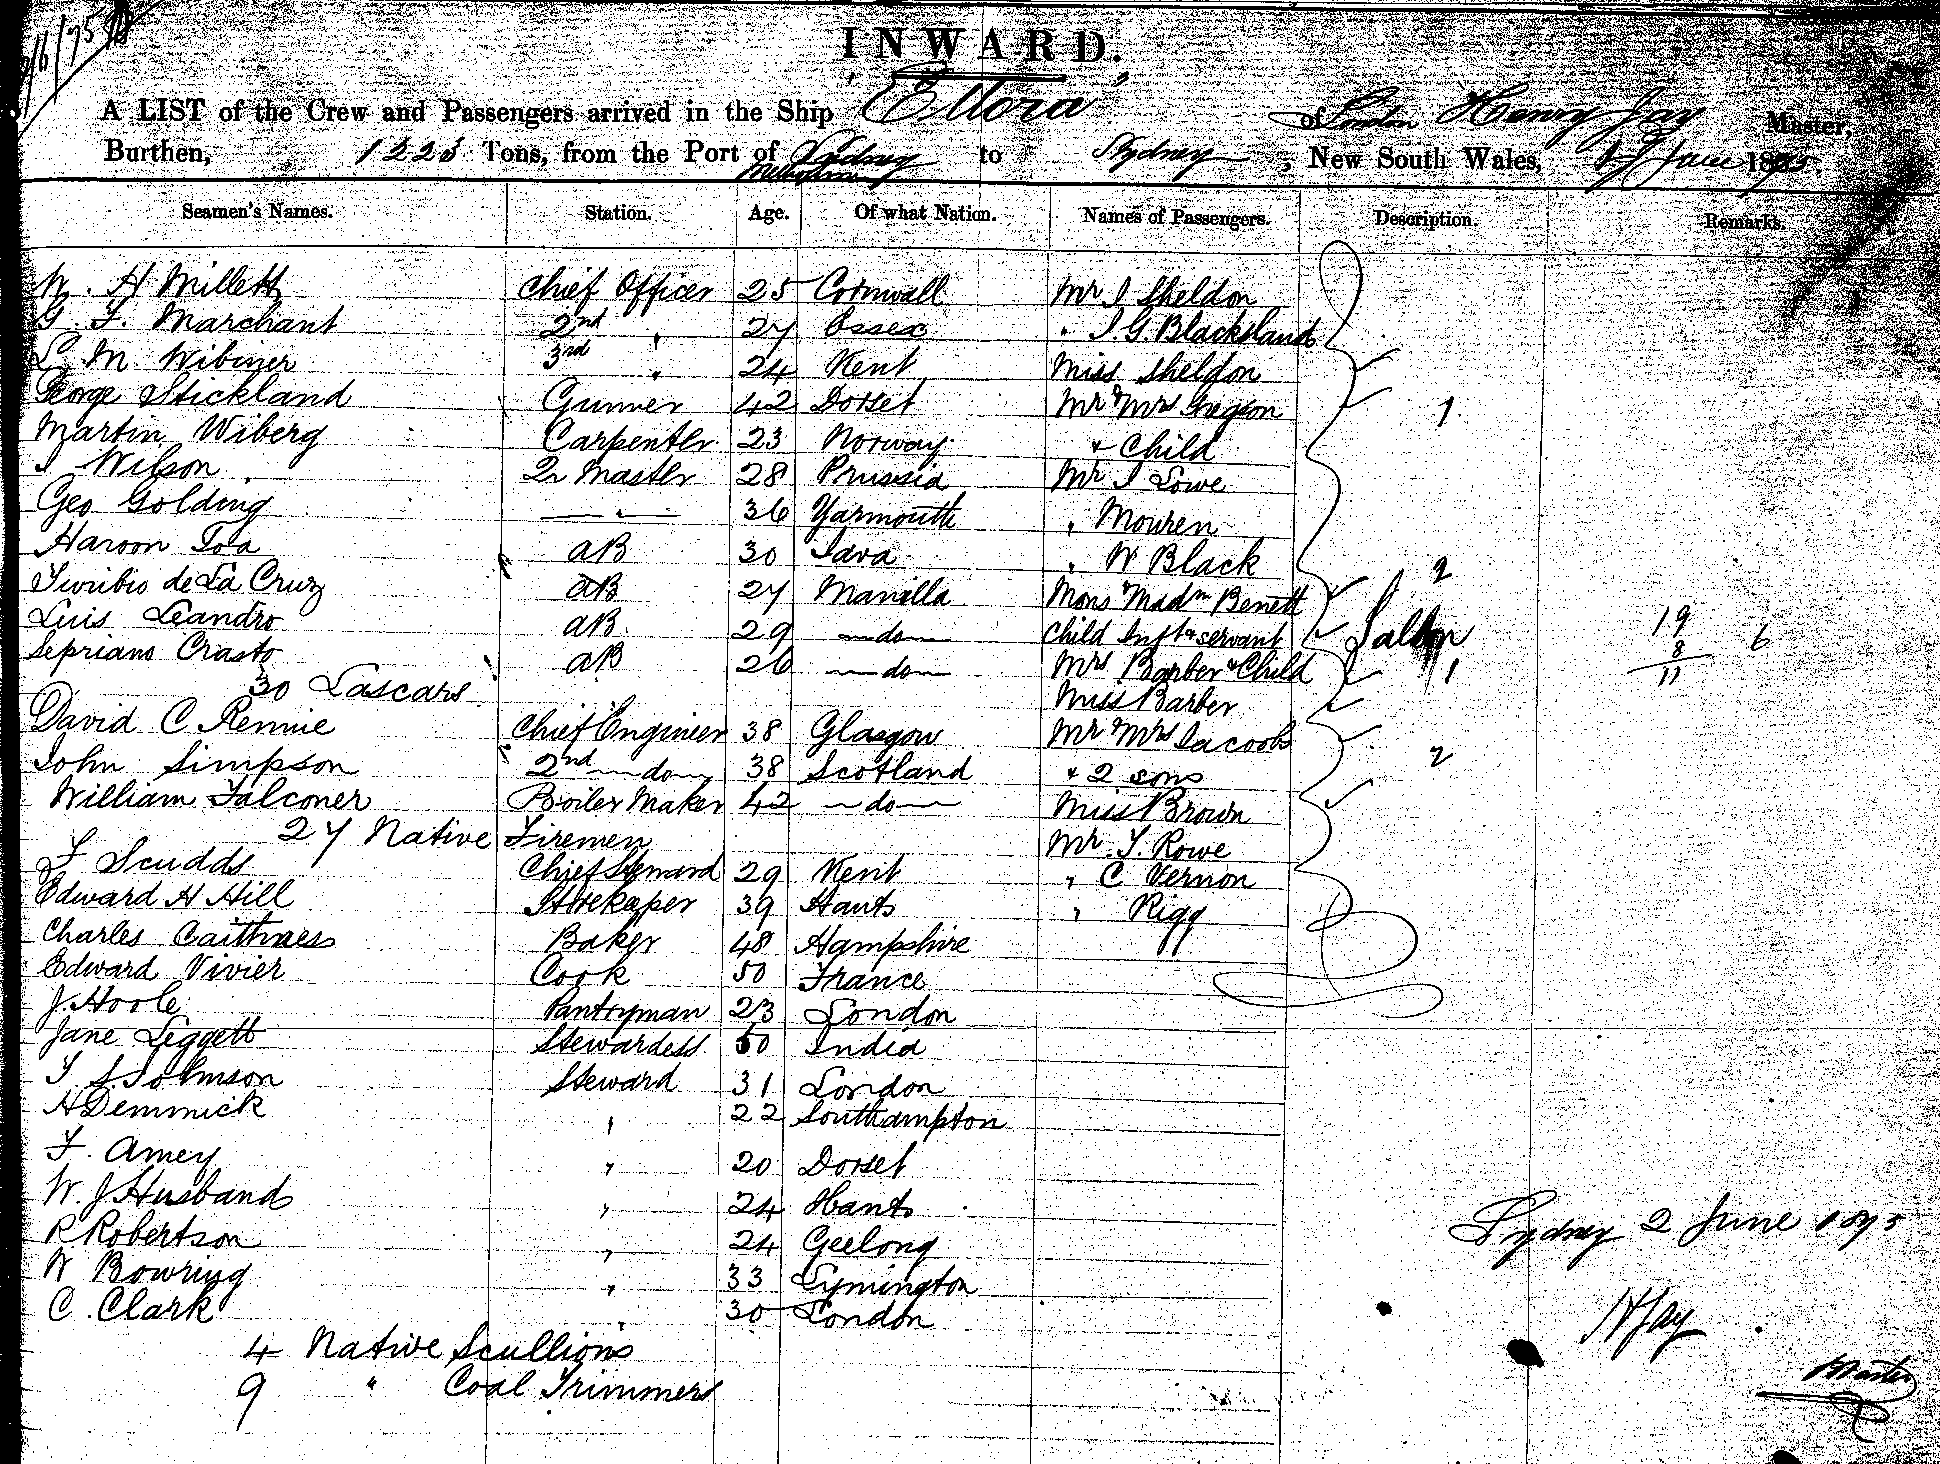 INWARD.
A LIST of the Crew and Passengers arrived in the Ship "Ellora" of London Henry Jay Master,
Burthen, 1223 Tons, from the Port of Sydney Melbourne to Sydney, New South Wales, June 1875
Seamen's Names. Station. Age. Of what Nation. Names of Passengers. Description. Remarks.
W. H Millett Chief Officer 25 Cornwall Mr J Sheldon
G. F. Marchant 2nd " 27 Essex " J. G. Blacksland
L. M. Wibmer 3rd " 24 Kent Miss Sheldon
George Stickland Gunner 42 Dorset Mr & Mrs Gregson 1
Martin Wiberg Carpenter 23 Norway & Child
J Wilson Qr Master 28 Prussia Mr J Lowe
Geo Golding " 36 Yarmouth " Mouren
Haroon Toa AB 30 Java " W Black 2
Turibio de La Cruz AB 27 Manilla Mons & Madm Benett
Luis Leandro AB 29 do Child Inft & servant Saloon 19 6
Sepriano Crasto AB 26 do Mrs Barber & Child 1 8
30 Lascars Miss Barber 11
David C Rennie Chief Engineer 38 Glasgow Mr & Mrs Jacoobs
John Simpson 2nd do 38 Scotland & 2 sons 2
William Falconer Boiler Maker 42 do Miss Brown
27 Native Firemen Mr. T. Rowe
F Scudds Chief Steward 29 Kent " C Vernon
Edward H Hill Storekeper 39 Hants " Rigg
Charles Caithness Baker 48 Hampshire
Edward Vivier Cook 50 France
J. Hoole Pantryman 23 London
Jane Leggett Stewardess 50 India
T. S. Johnson Steward 31 London
H Demmick " 22 Southampton
F. Amey " 20 Dorset
W. J Husband " 24 Hants
R Robertson " 24 Geelong
W Bowring " 33 Lymington
C. Clark " 30 London
Sydney 2 June 1875
H Jay
Master
4 Native Scullions
9 " Coal Trimmers